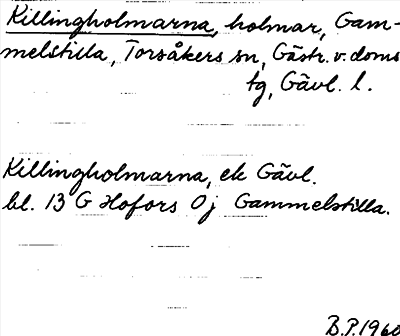 Killingholmarna, holmar, Gam-
melstilla, Torsåkers sn, Gästr. v. doms
tg, Gävl. l.
Killingholmarna, ek Gävl.
bl. 13 G Hofors 0 j Gammelstilla.
B.P. 1960